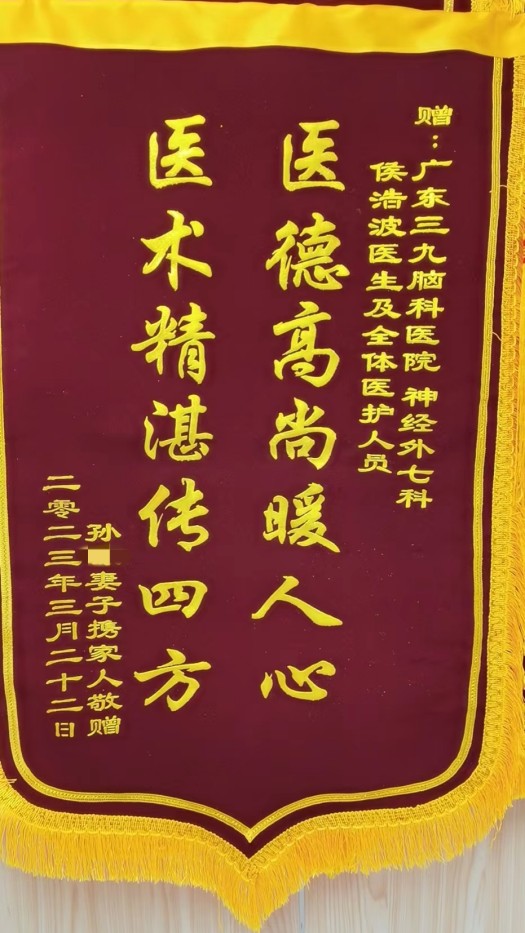 赠：广东三九脑科医院 神经外七科
侯浩波医生及全体医护人员
医德高尚暖人心
医术精湛传四方
孙 妻子携家人敬赠
二零二三年三月二十二日